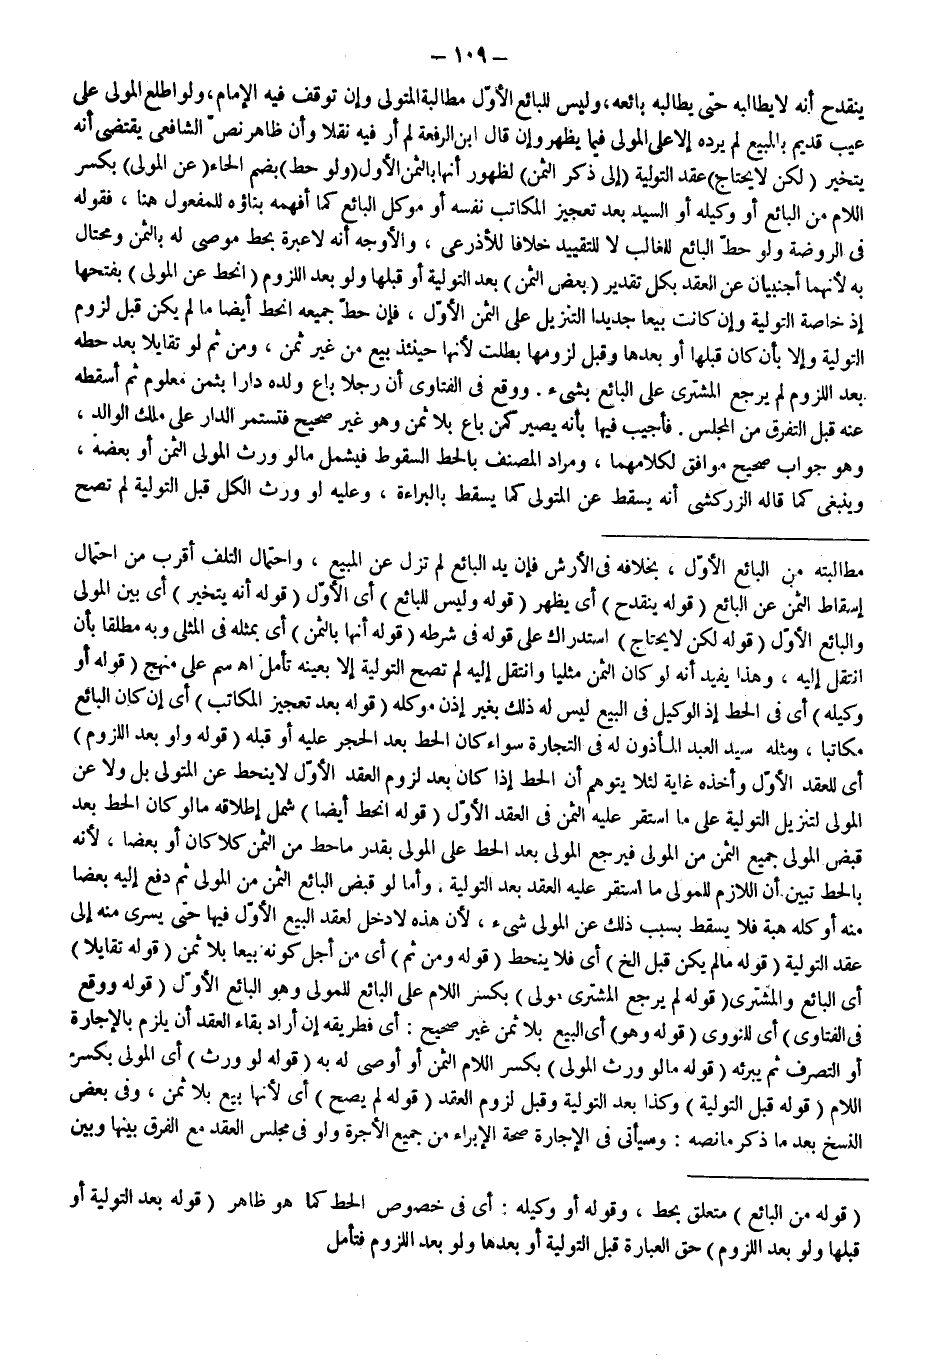 – ١٠٩ –
ينقدح أنه لايطالبه حتى يطالبه بائعه، وليس للبائع الأوّل مطالبة المتولى وإن توقف فيه الإمام، ولو اطلع المولى على
عيب قديم بالمبيع لم يرده إلا على المولى فيما يظهر وإن قال ابن الرفعة لم أر فيه نقلا وأن ظاهر نصّ الشافعى يقتضى أنه
يتخير ( لكن لايحتاج) عقد التولية (إلى ذكر الثمن) لظهور أنها بالثمن الأول (ولو حط) بضم الحاء (عن المولى) بكسر
اللام من البائع أو وكيله أو السيد بعد تعجيز المكاتب نفسه أو موكل البائع كما أفهمه بناؤه للمفعول هنا ، فقوله
فى الروضة ولو حطّ البائع للغالب لا للتقييد خلافا للأذرعى ، والأوجه أنه لاعبرة بحط موصى له بالثمن ومحتال
به لأنهما أجنبيان عن العقد بكل تقدير (بعض الثمن) بعد التولية أو قبلها ولو بعد اللزوم ( انحط عن المولى ) بفتحها
إذ خاصة التولية وإن كانت بيعا جديدا التنزيل على الثمن الأوّل ، فإن حطّ جميعه انحط أيضا ما لم يكن قبل لزوم
التولية وإلا بأن كان قبلها أو بعدها وقبل لزومها بطلت لأنها حينئذ بيع من غير ثمن ، ومن ثم لو تقايلا بعد حطه
بعد اللزوم لم يرجع المشترى على البائع بشىء . ووقع فى الفتاوى أن رجلا باع ولده دارا بثمن معلوم ثم أسقطه
عنه قبل التفرق من المجلس . فأجيب فيها بأنه يصير كمن باع بلا ثمن وهو غير صحيح فتستمر الدار على ملك الوالد ،
وهو جواب صحيح موافق لكلامهما ، ومراد المصنف بالحط السقوط فيشمل مالو ورث المولى الثمن أو بعضه ،
وينبغى كما قاله الزركشى أنه يسقط عن المتولى كما يسقط بالبراءة ، وعليه لو ورث الكل قبل التولية لم تصح
مطالبته من البائع الأوّل ، بخلافه فى الأرش فإن يد البائع لم تزل عن المبيع ، واحتمال التلف أقرب من احتمال
إسقاط الثمن عن البائع ( قوله ينقدح ) أى يظهر ( قوله وليس للبائع ) أى الأوّل ( قوله أنه يتخير ) أى بين المولى
والبائع الأوّل ( قوله لكن لايحتاج ) استدراك على قوله فى شرطه ( قوله أنها بالثمن ) أى بمثله فى المثلى وبه مطلقا بأن
انتقل إليه ، وهذا يفيد أنه لو كان الثمن مثليا وانتقل إليه لم تصح التولية إلا بعينه تأمل اه سم على منهج ( قوله أو
وكيله ) أى فى الحط إذ الوكيل فى البيع ليس له ذلك بغير إذن موكله ( قوله بعد تعجيز المكاتب ) أى إن كان البائع
مكاتبا ، ومثله سيد العبد المأذون له فى التجارة سواء كان الحط بعد الحجر عليه أو قبله ( قوله ولو بعد اللزوم )
أى للعقد الأوّل وأخذه غاية لئلا يتوهم أن الحط إذا كان بعد لزوم العقد الأوّل لاينحط عن المتولى بل ولا عن
المولى لتنزيل التولية على ما استقر عليه الثمن فى العقد الأوّل ( قوله انحط أيضا ) شمل إطلاقه مالو كان الحط بعد
قبض المولى جميع الثمن من المولى فيرجع المولى بعد الحط على المولى بقدر ماحط من الثمن كلا كان أو بعضا ، لأنه
بالحط تبين أن اللازم للمولى ما استقر عليه العقد بعد التولية . وأما لو قبض البائع الثمن من المولى ثم دفع إليه بعضا
منه أو كله هبة فلا يسقط بسبب ذلك عن المولى شىء ، لأن هذه لادخل لعقد البيع الأوّل فيها حتى يسرى منه إلى
عقد التولية ( قوله مالم يكن قبل الخ ) أى فلا ينحط ( قوله ومن ثم ) أى من أجل كونه بيعا بلا ثمن ( قوله تقايلا )
أى البائع والمشترى ( قوله لم يرجع المشترى مولى ) بكسر اللام على البائع للمولى وهو البائع الأوّل ( قوله ووقع
فى الفتاوى ) أى للنووى ( قوله وهو) أى البيع بلا ثمن غير صحيح : أى فطريقه إن أراد بقاء العقد أن يلزم بالإجارة
أو التصرف ثم يبرئه ( قوله مالو ورث المولى ) بكسر اللام الثمن أو أوصى له به ( قوله لو ورث ) أى المولى بكسر
اللام ( قوله قبل التولية ) وكذا بعد التولية وقبل لزوم العقد ( قوله لم يصح ) أى لأنها بيع بلا ثمن ، وفى بعض
النسخ بعد ما ذكر مانصه : وسيأتى فى الإجارة صحة الإبراء من جميع الأجرة ولو فى مجلس العقد مع الفرق بينها وبين
( قوله من البائع ) متعلق بحط ، وقوله أو وكيله : أى فى خصوص الحط كما هو ظاهر ( قوله بعد التولية أو
قبلها ولو بعد اللزوم ) حق العبارة قبل التولية أو بعدها ولو بعد اللزوم فتأمل